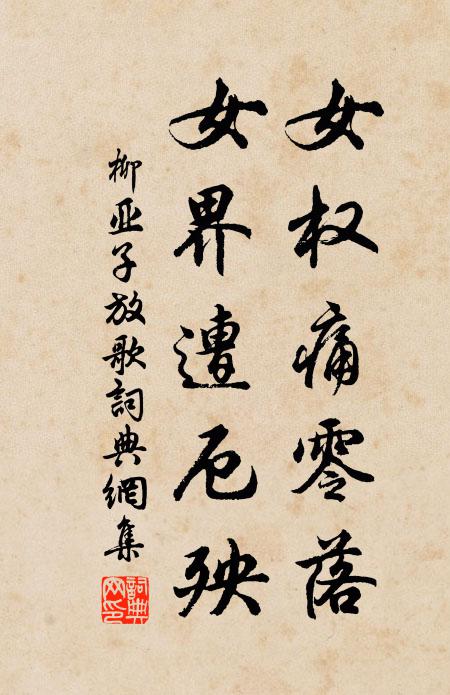 女权痛零落
女界遭厄殃
柳亚子放歌詞典網集
詞典网印